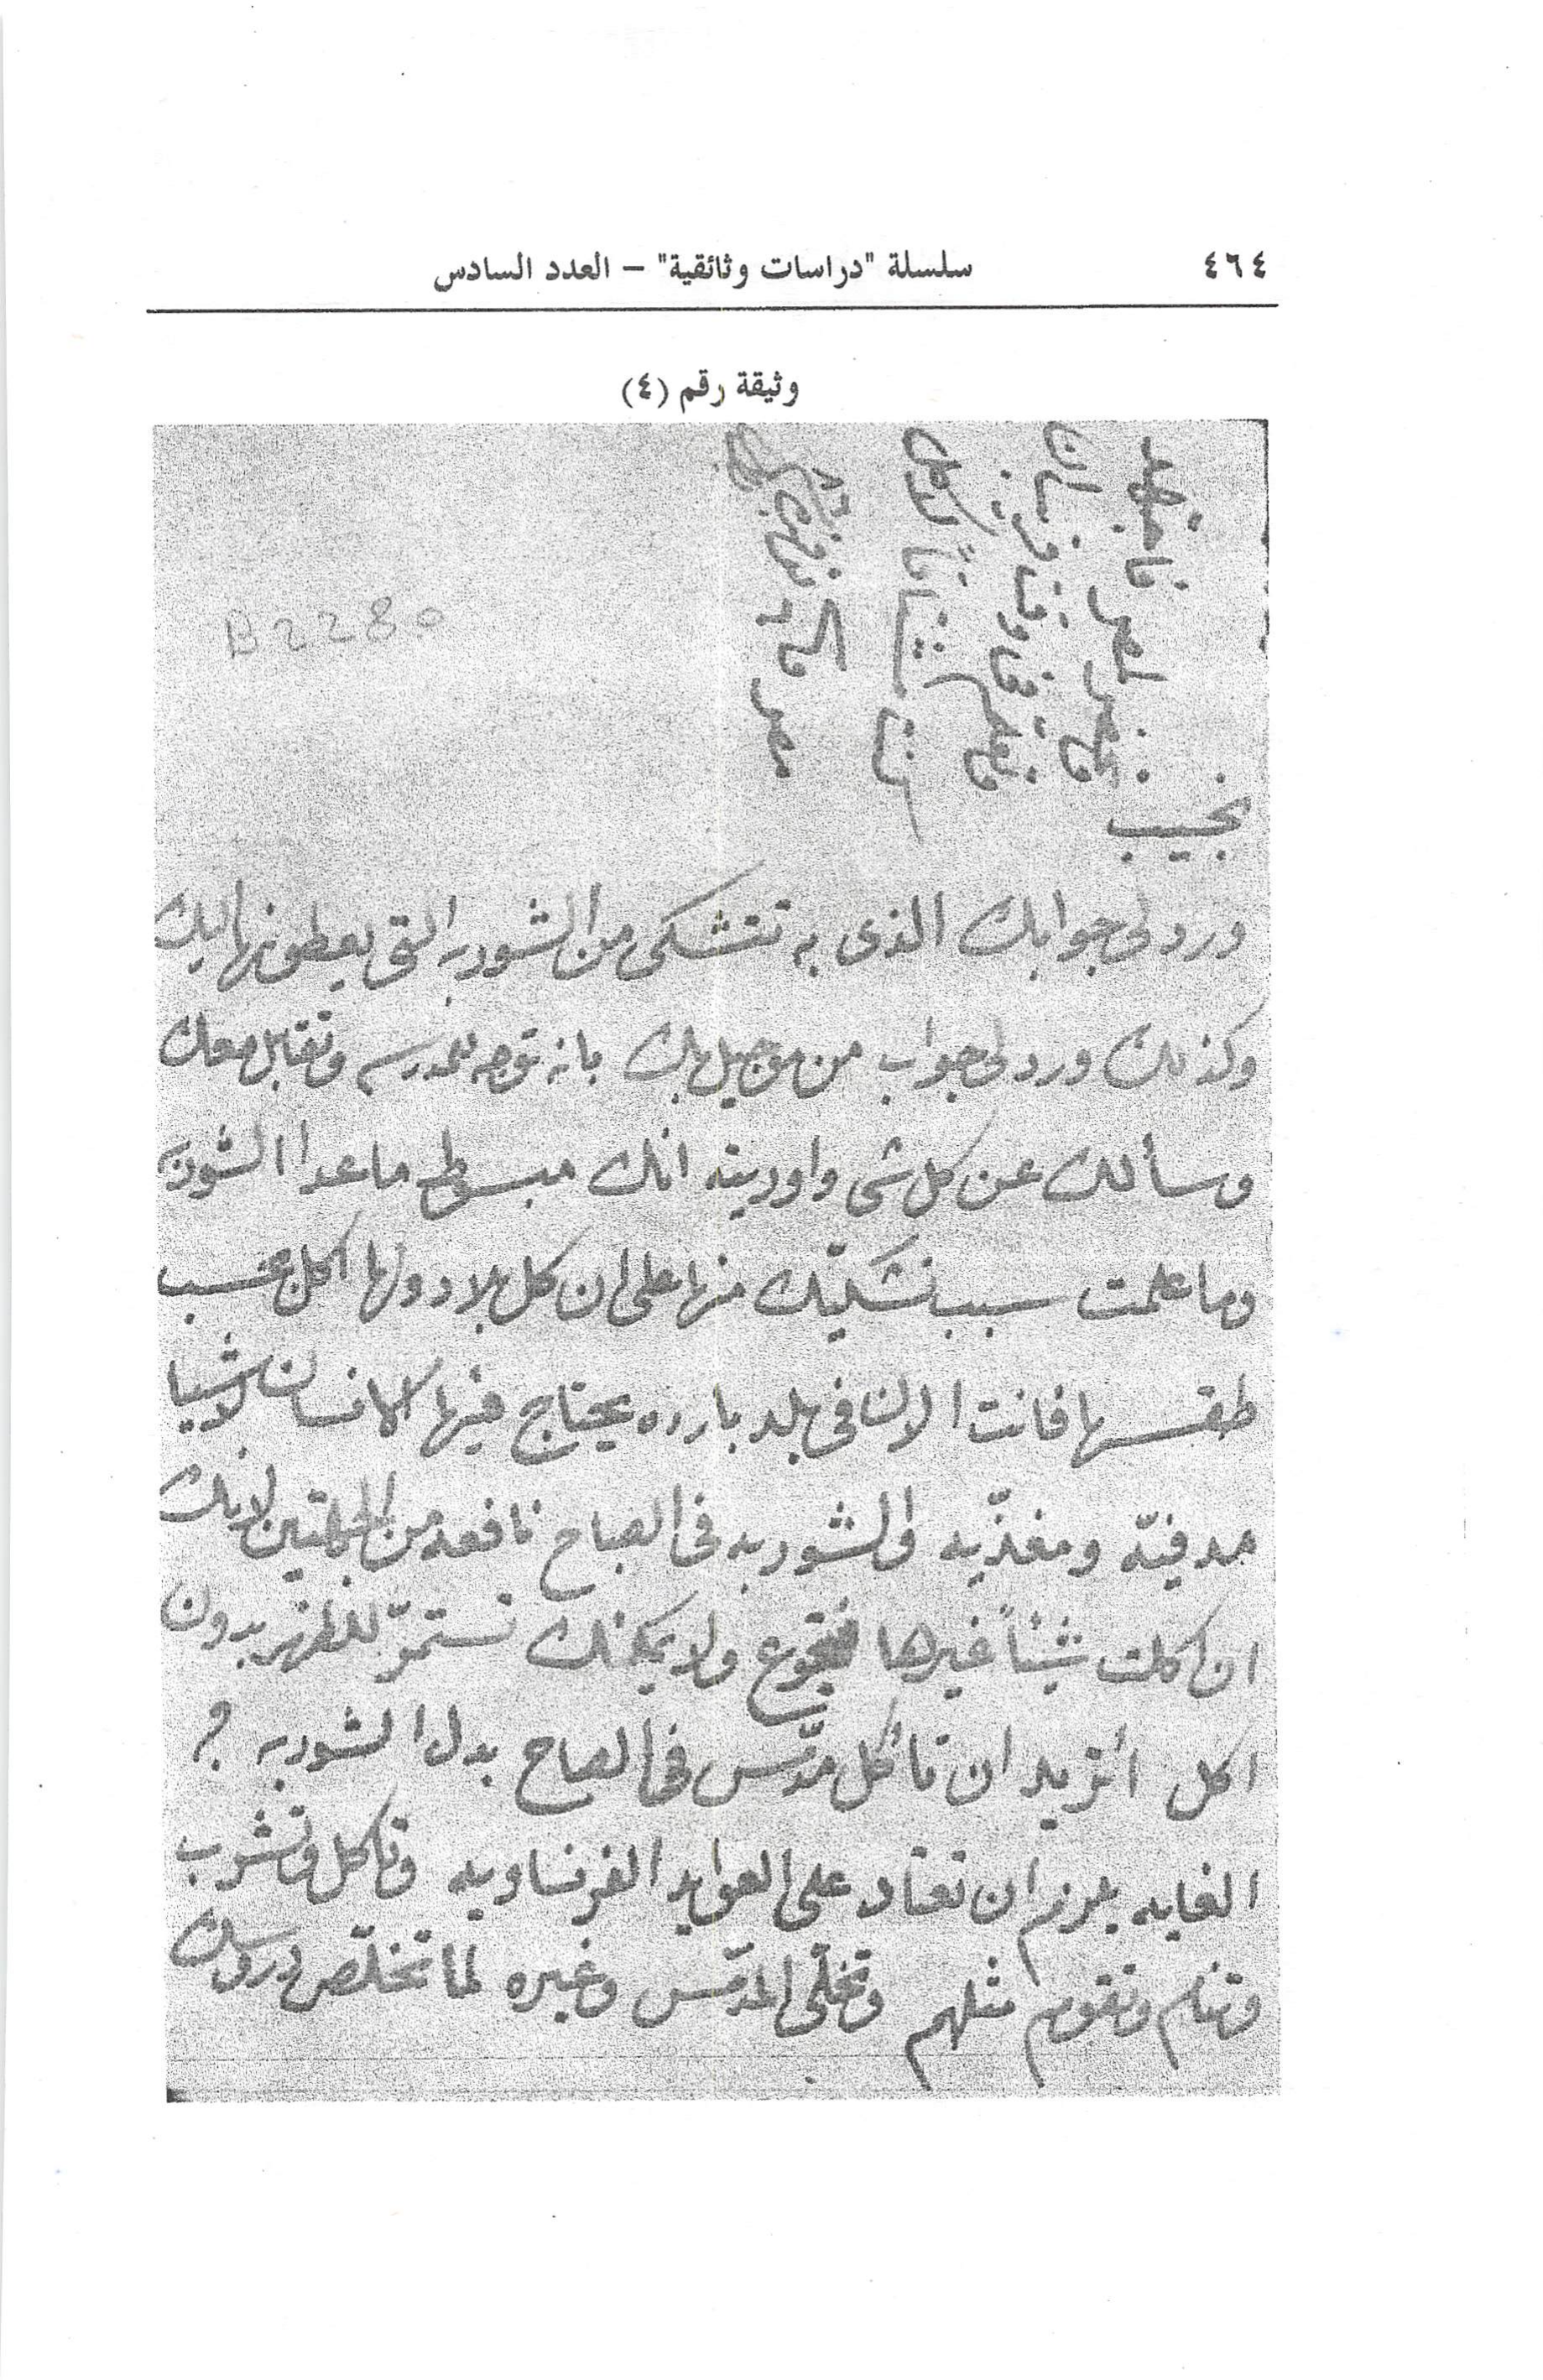 ٤٦٤
سلسلة "دراسات وثائقية" – العدد السادس
وثيقة رقم (٤)
B2280
نجيب
ورد لى جوابك الذى به تتشكى من الشوربه التى يعطونها اليك
وكذلك ورد لى جواب من موجيل بك بانه توجه للمدرسه وتقابل معك
وسألك عن كل شى واوريته انك مبسوط ماعدا الشوربه
وما علمت سبب تشكيّك منها على ان كل بلاد ولها اكل حسب
طقسها فانت الان فى بلد بارده يحتاج فيها الانسان لاشيا
مدفيّه ومغذّيه والشوربه فى الصباح نافعه من الجهتين لانك
ان اكلت شيئاً غيرها فتجوع ولا يمكنك تستمرّ للظهر بدون
اكل أتريد ان تأكل مدمّس فى الصباح بدل الشوربه ؟
الغايه يلزم ان تعتاد على العوايد الفرنساويه وتاكل وتشرب
وتنام وتقوم مثلهم وتخلّى المدمّس وغيره لما تخلّص دروسك